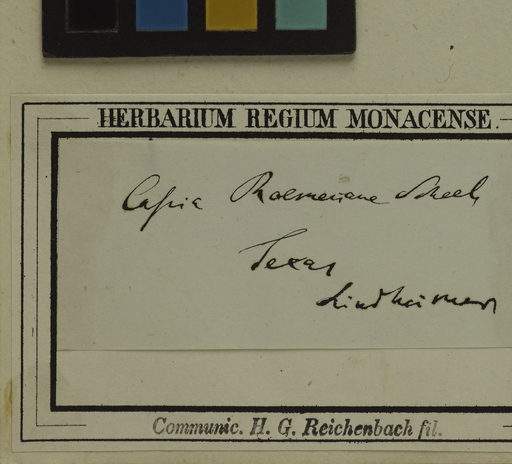 HERBARIUM REGIUM MONACENSE.
Cassia Roemeriana Scheele
Texas
Lindheimer
Communic. H. G. Reichenbach fil.